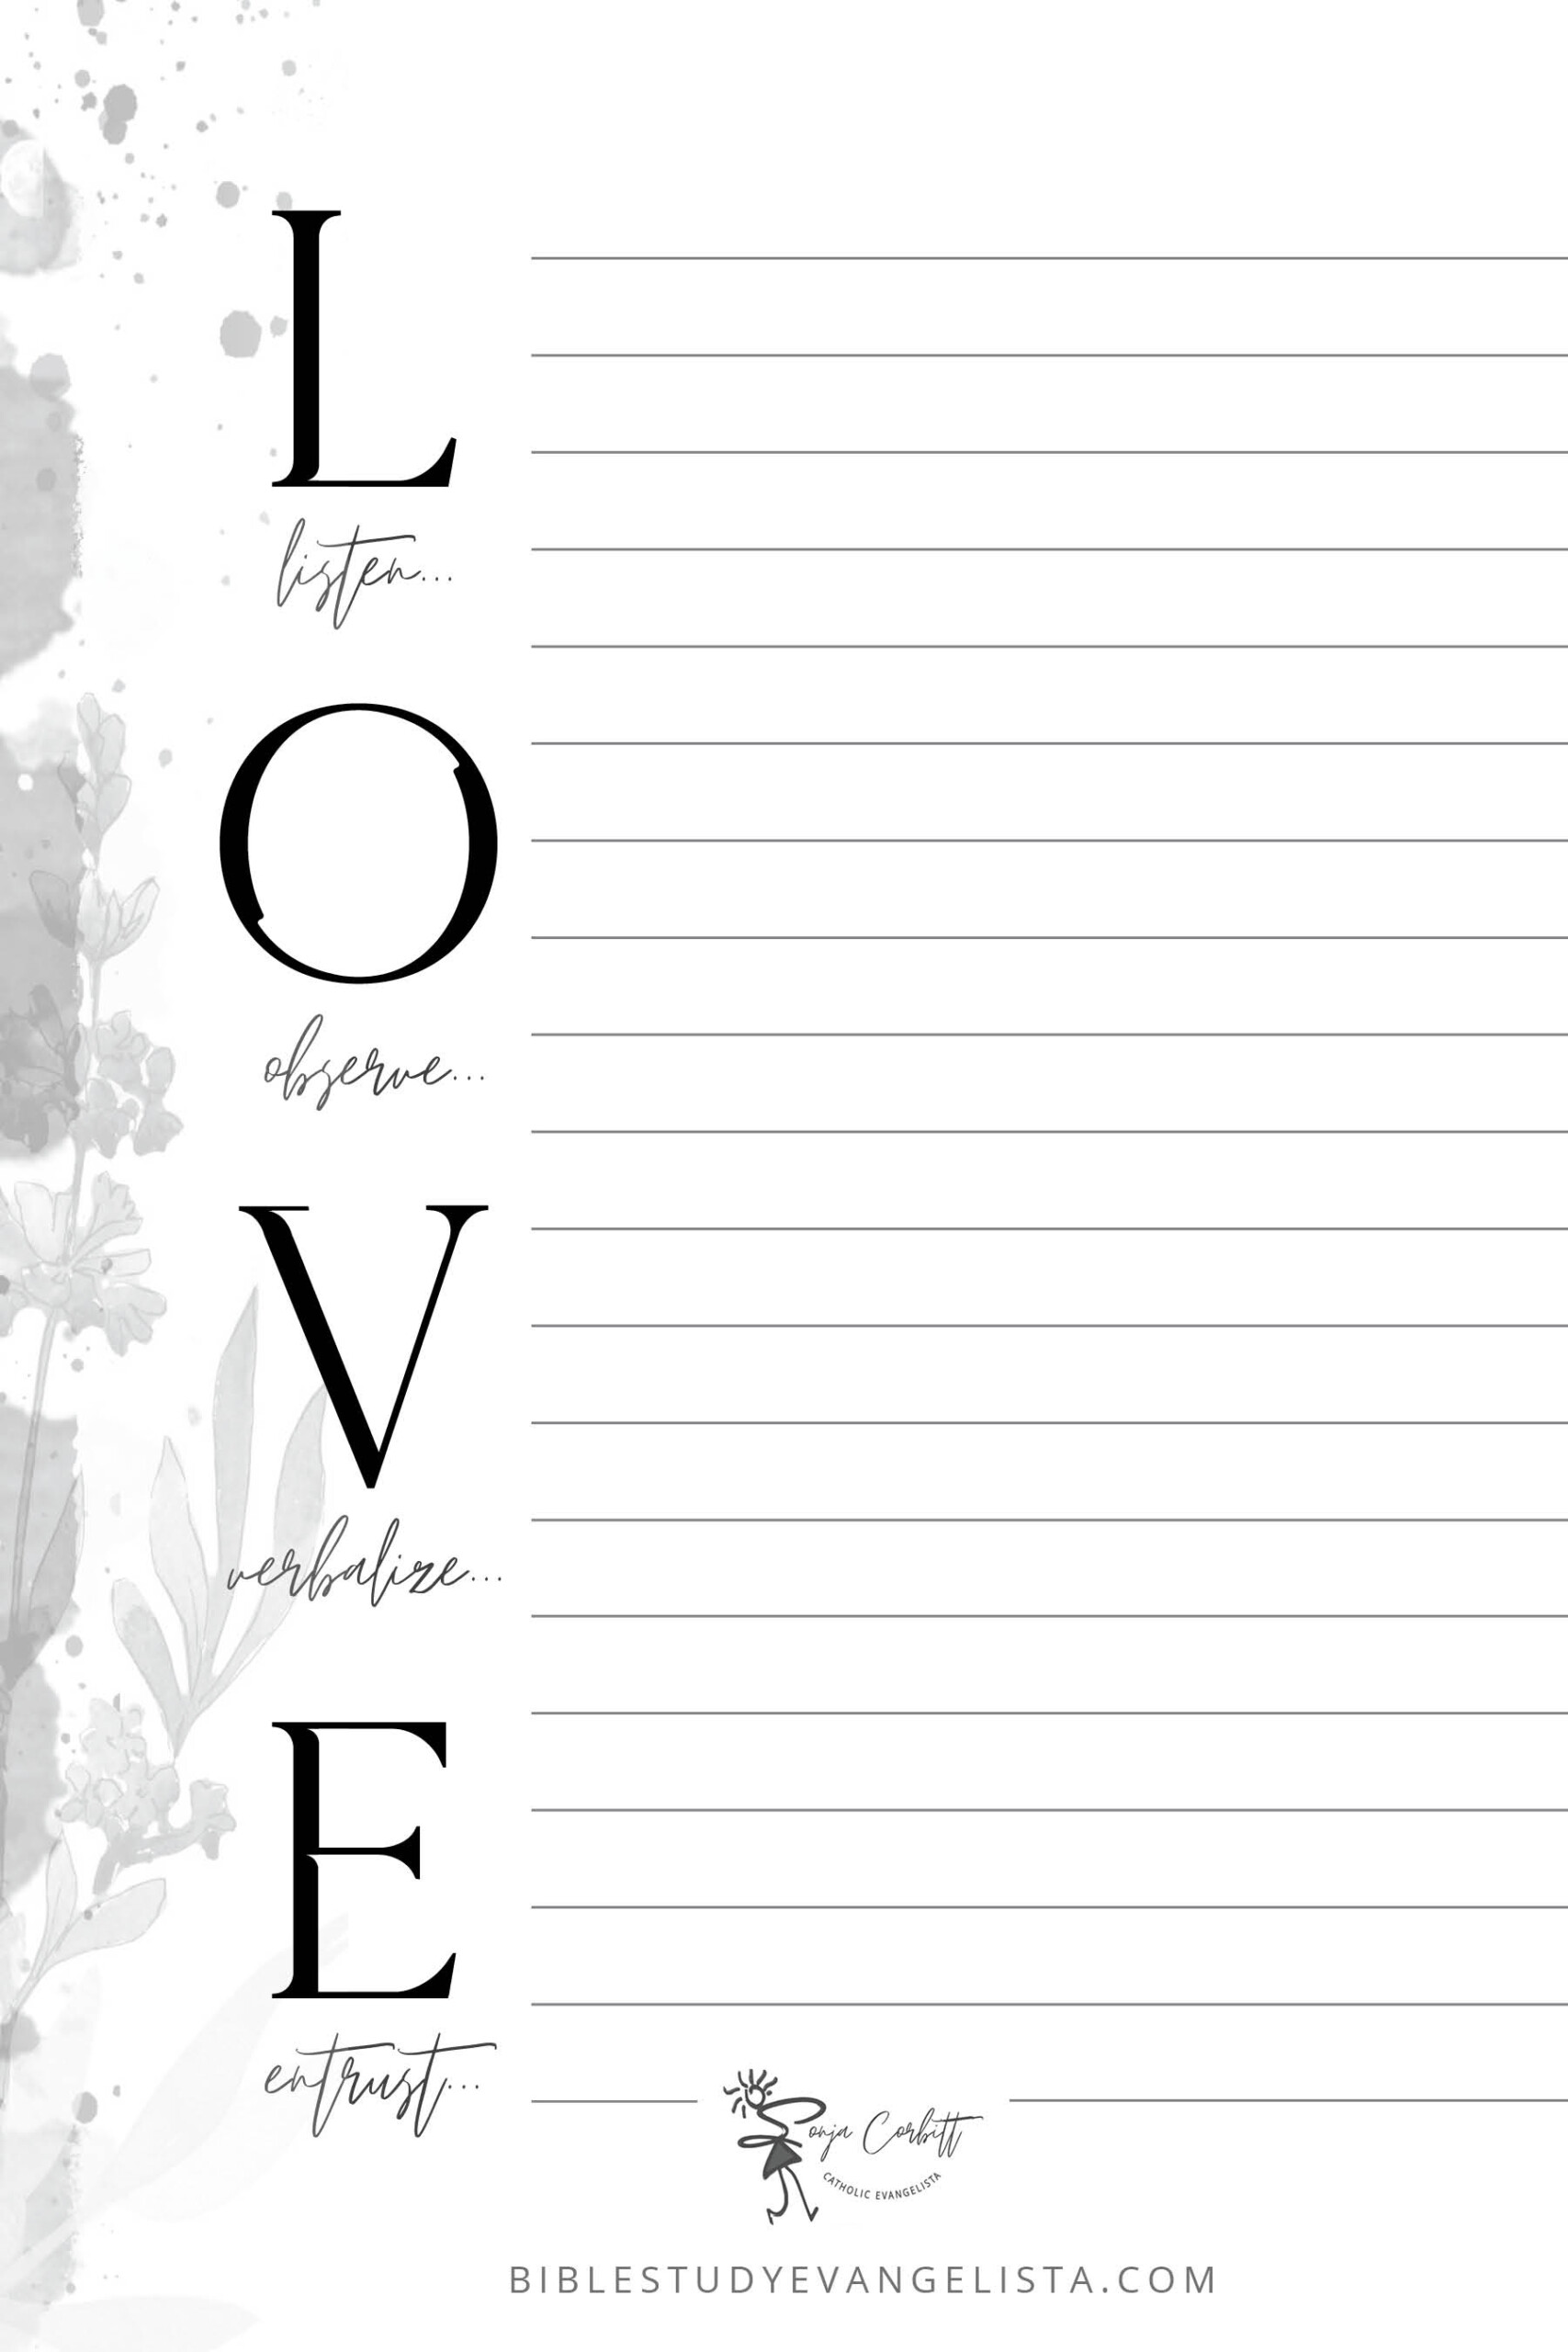 L
listen...
O
observe...
V
verbalize...
E
entrust...
Sonja Corbitt
CATHOLIC EVANGELISTA
BIBLESTUDYEVANGELISTA.COM